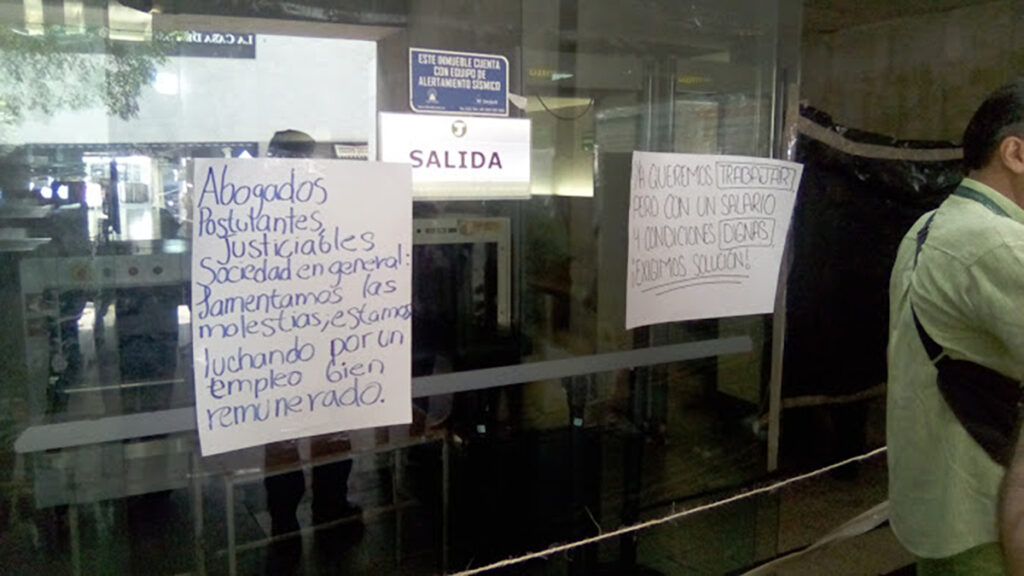 LA CASA DE
ESTE INMUEBLE CUENTA
CON EQUIPO DE
ALERTAMIENTO SÍSMICO
SALIDA
Abogados
Postulantes,
Justiciables
Sociedad en general:
Lamentamos las
molestias, estamos
luchando por un
empleo bien
remunerado.
¡YA QUEREMOS TRABAJAR,
PERO CON UN SALARIO
Y CONDICIONES DIGNAS,
¡EXIGIMOS SOLUCIÓN!